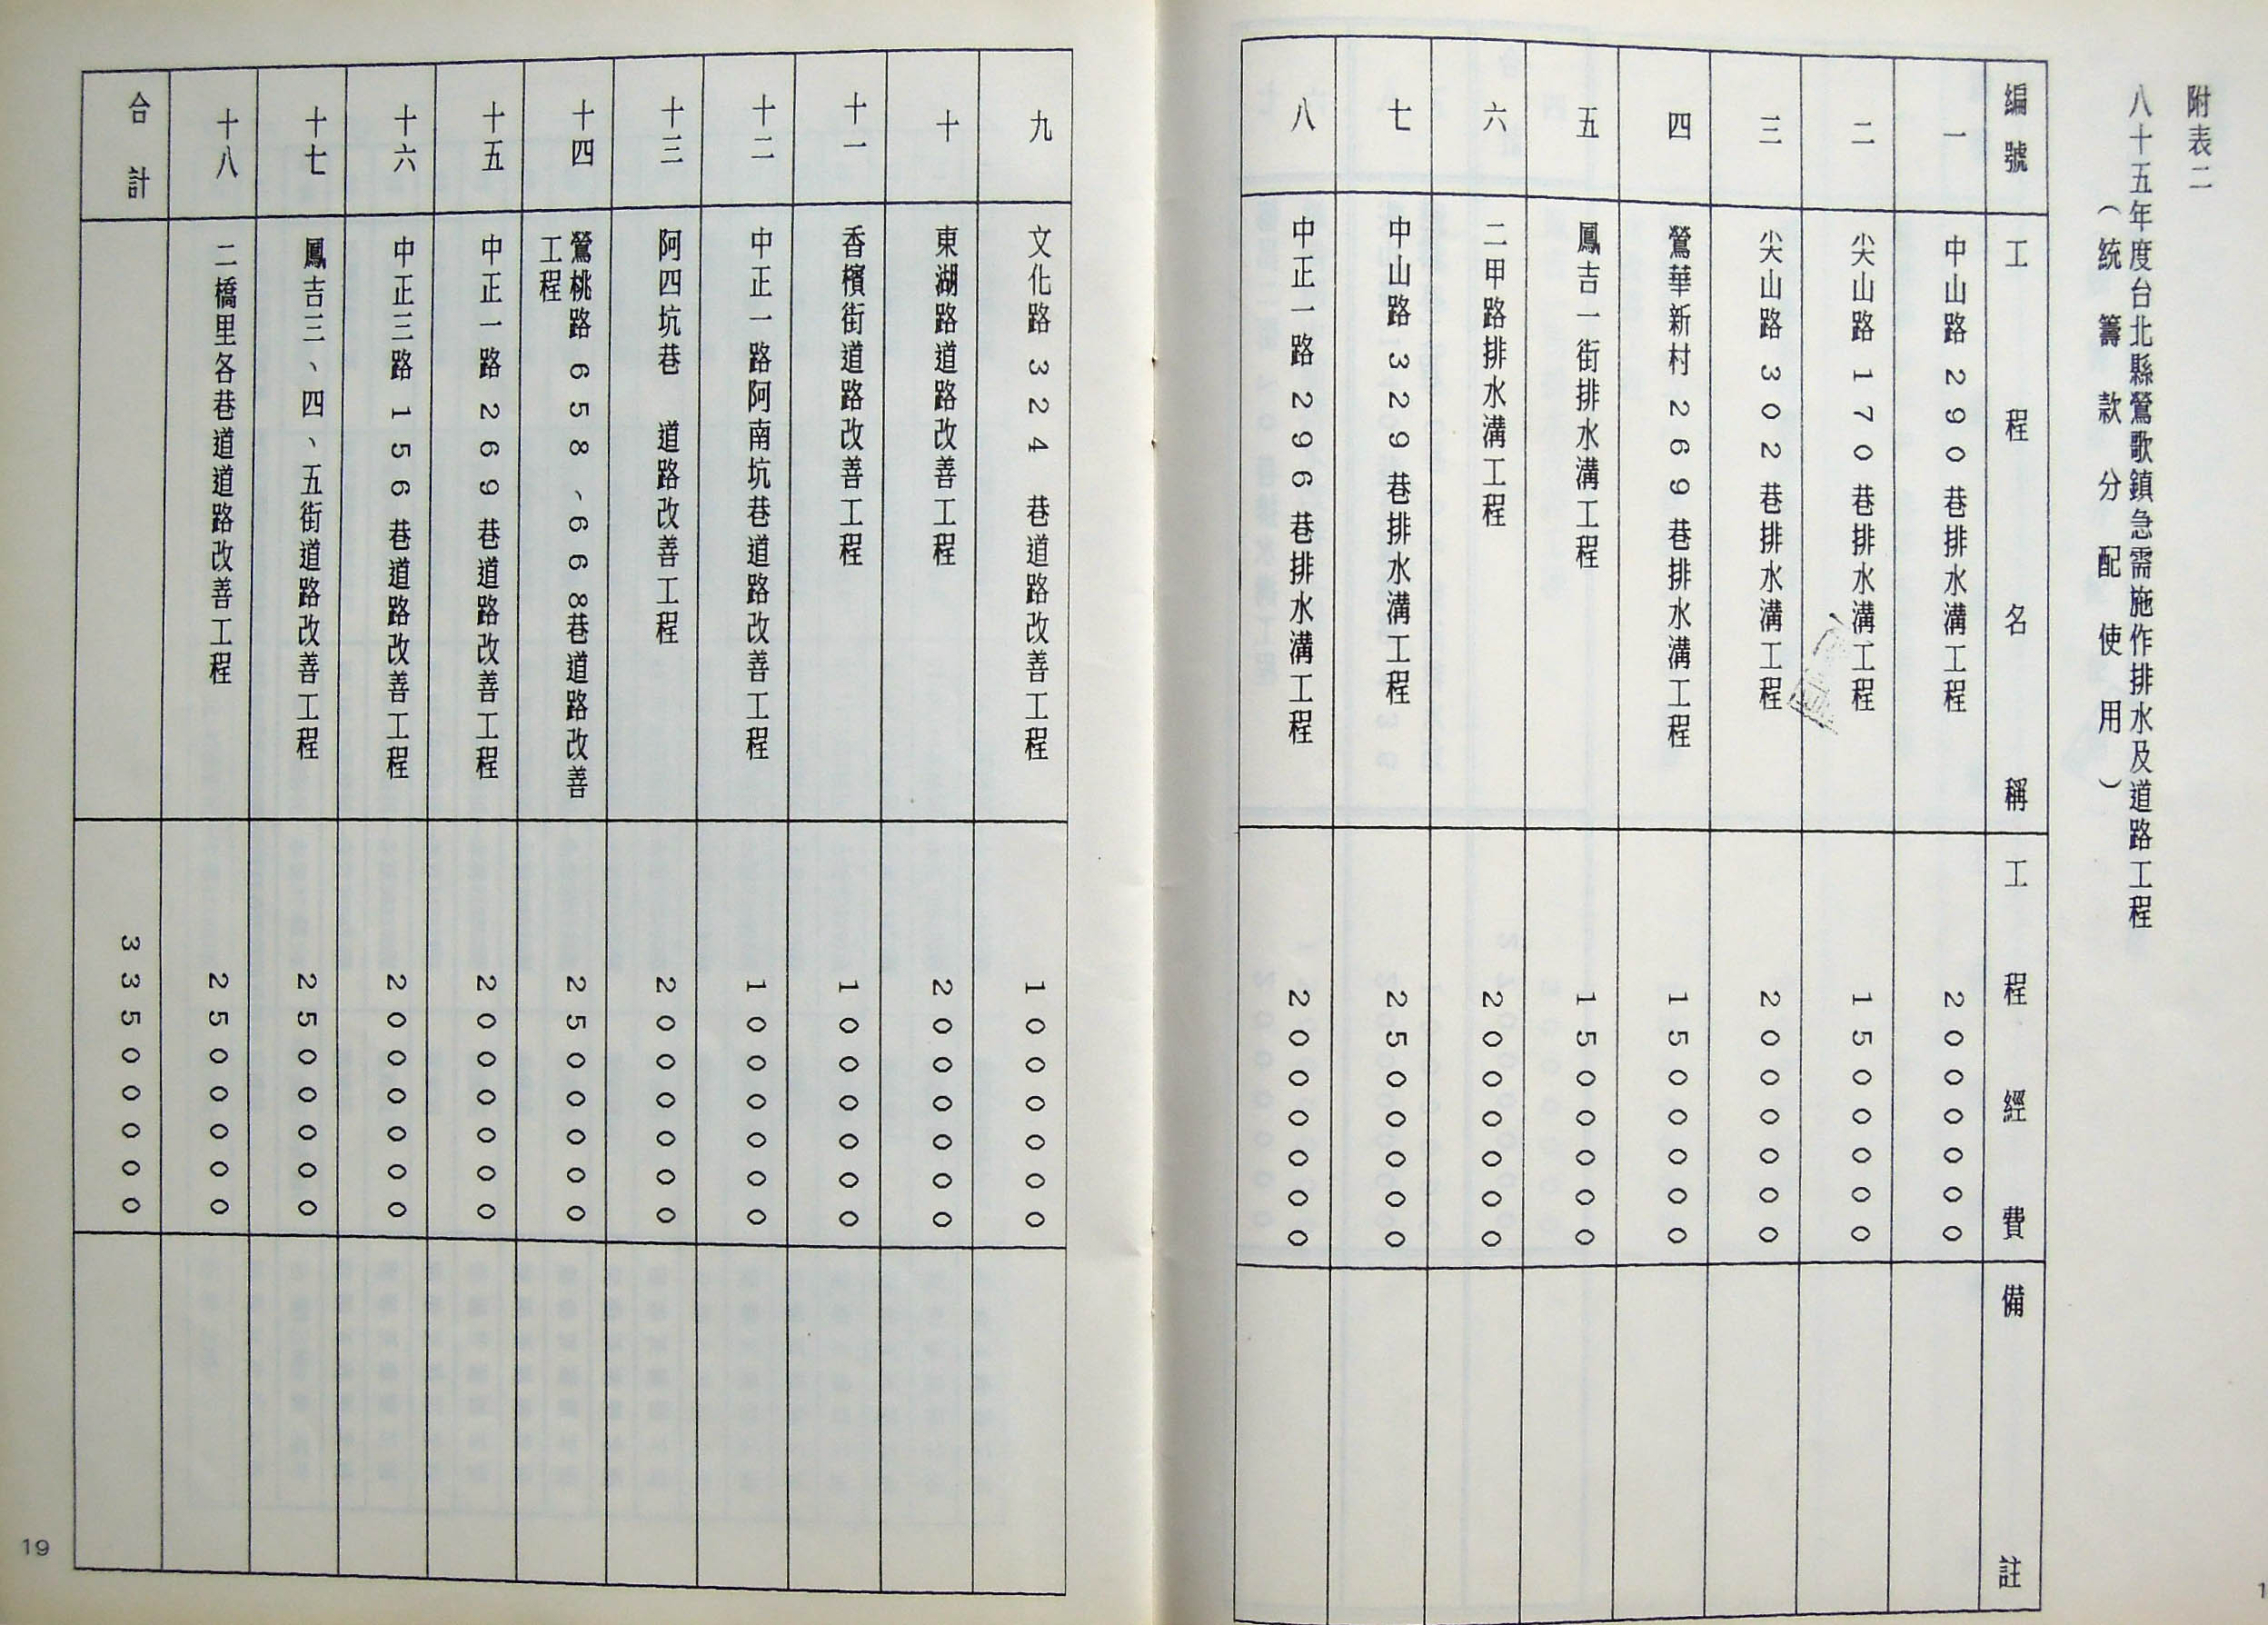 附表二
八十五年度台北縣鶯歌鎮急需施作排水及道路工程
(統籌款分配使用)
編號 工程名稱 工程經費 備註
一 中山路290巷排水溝工程 2000000
二 尖山路170巷排水溝工程 1500000
三 尖山路302巷排水溝工程 2000000
四 鶯華新村269巷排水溝工程 1500000
五 鳳吉一街排水溝工程 1500000
六 二甲路排水溝工程 2000000
七 中山路329巷排水溝工程 2500000
八 中正一路296巷排水溝工程 2000000
九 文化路324巷道路改善工程 1000000
十 東湖路道路改善工程 2000000
十一 香檳街道路改善工程 1000000
十二 中正一路阿南坑巷道路改善工程 1000000
十三 阿四坑巷 道路改善工程 2000000
十四 鶯桃路658、668巷道路改善
工程 2500000
十五 中正一路269巷道路改善工程 2000000
十六 中正三路156巷道路改善工程 2000000
十七 鳳吉三、四、五街道路改善工程 2500000
十八 二橋里各巷道道路改善工程 2500000
合計 33500000
19